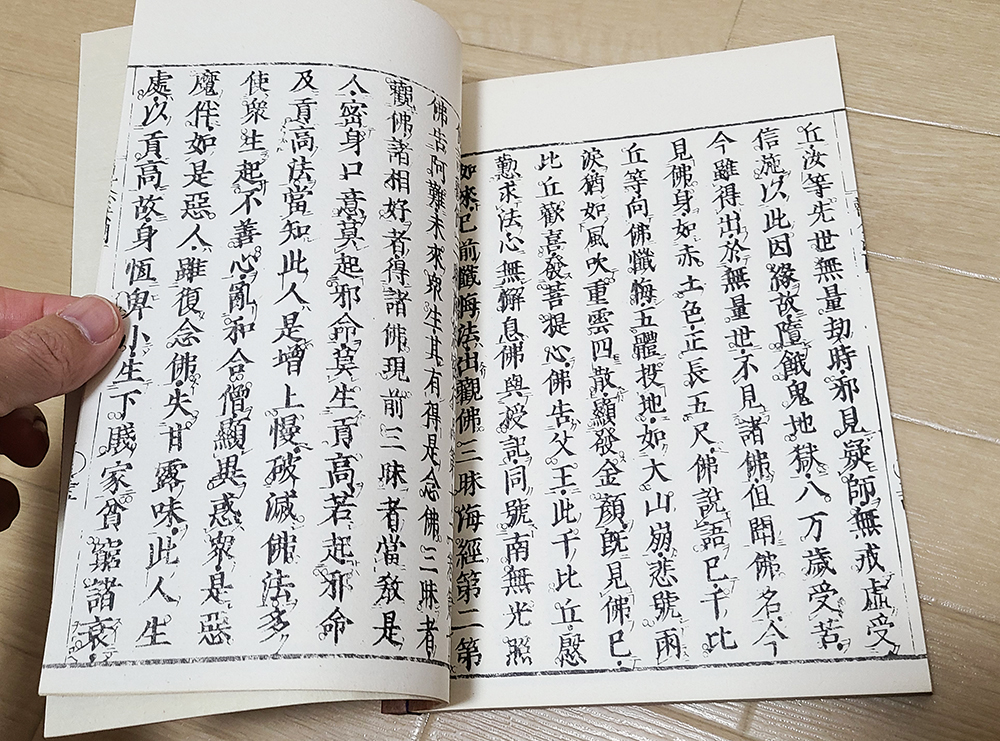 丘汝等先世無量劫時邪見疑師無戒虛受
信施以此因緣故墮餓鬼地獄八万歲受苦
今雖得出於無量世不見諸佛但聞佛名今
見佛身如赤土色正長五尺佛說語已千比
丘等向佛懺悔五體投地如大山崩悲號雨
淚猶如風吹重雲四散顯發金顏既見佛已
比丘歡喜發菩提心佛告父王此千比丘慇
懃求法心無懈息佛與授記同號南無光照
如來已前懺悔法出觀佛三昧海經第二第
佛告阿難未來眾生其有得是念佛三昧者
觀佛諸相好者得諸佛現前三昧者當教是
人密身口意莫起邪命莫生貢高若起邪命
及貢高法當知此人是增上慢破滅佛法多
使眾生起不善心亂和合僧顯異惑眾是惡
魔伴如是惡人雖復念佛失甘露味此人生
處以貢高故身恆卑小生下賤家貧窮諸衰